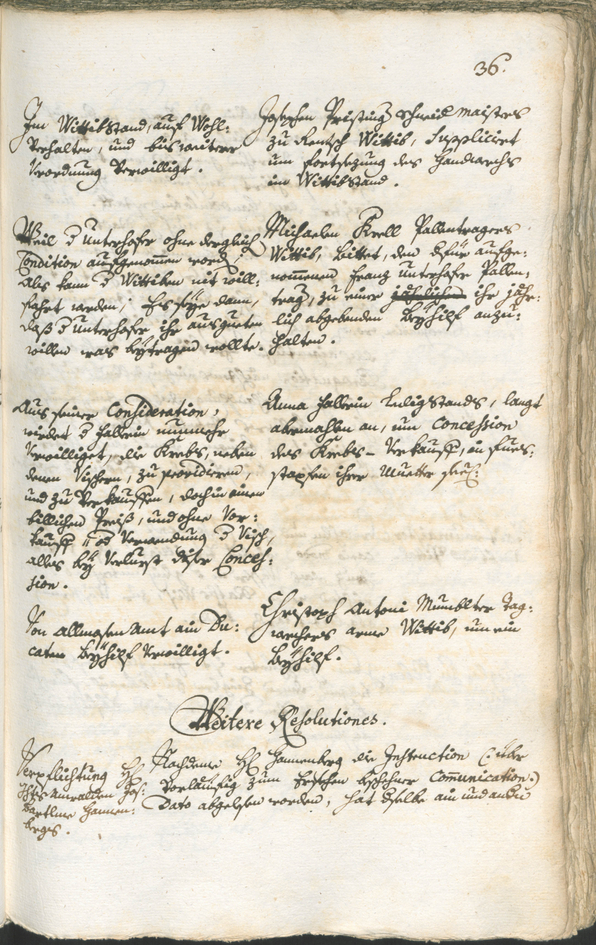 36.
Im Wittibstand, auf Wohl-
Verhalten, und bis weitere
Verordnung Verwilligt.
Josephen Prissing Schneidmaisters
zu Rentsch Wittib, Supplicirt
um fortsezung des Handwerchs
im Wittibstand.
Weil d Unterhofer ohne dergleich
Condition aufgenommen word,
Als kann d Wittiben nit will-
fahrt werden; Es seye dann,
daß d Unterhofer ihr aus gueten
willen was beÿtragen wollte.
Michaelen Krell Pallentragers
Wittib, Bittet, den dafür aufge-
nommenen Franz Unterhofer Pallen-
trag, zu einer jährlichen ihr jähr-
lich abgebenden Beÿhilf anzu-
halten.
Aus seiner Consideration,
wirdet d Hallerin nunmehr
Verwilliget, die Krebs, neben
denen Vischern, zu providieren,
und zu Verkauffen, doch in einem
billichen Preiß, und ohne Vor-
kauff, od Verwendung d Visch,
alles beÿ Verlurst diser Conces-
sion.
Anna Hallerin Ledigstands, langt
abermahlen an, um Concession
des Krebs-Verkauff, in Fues-
stapfen ihrer Muetter seel:
Von Allmosen Amt ain Du-
caten Beÿhilf Verwilligt.
Christoph Antoni Mumblter Tag-
werchers arme Wittib, um ein
Beÿhilf.
Weitere Resolutiones.
Verpflichtung H
Anwalden Jos:
Bartlme Hannen-
bergs.
Nachdeme H Hannenberg die Instruction (über
Vorläuffig zum beschehner Communication)
Dato abgelesen worden, hat dselbe ain und andu